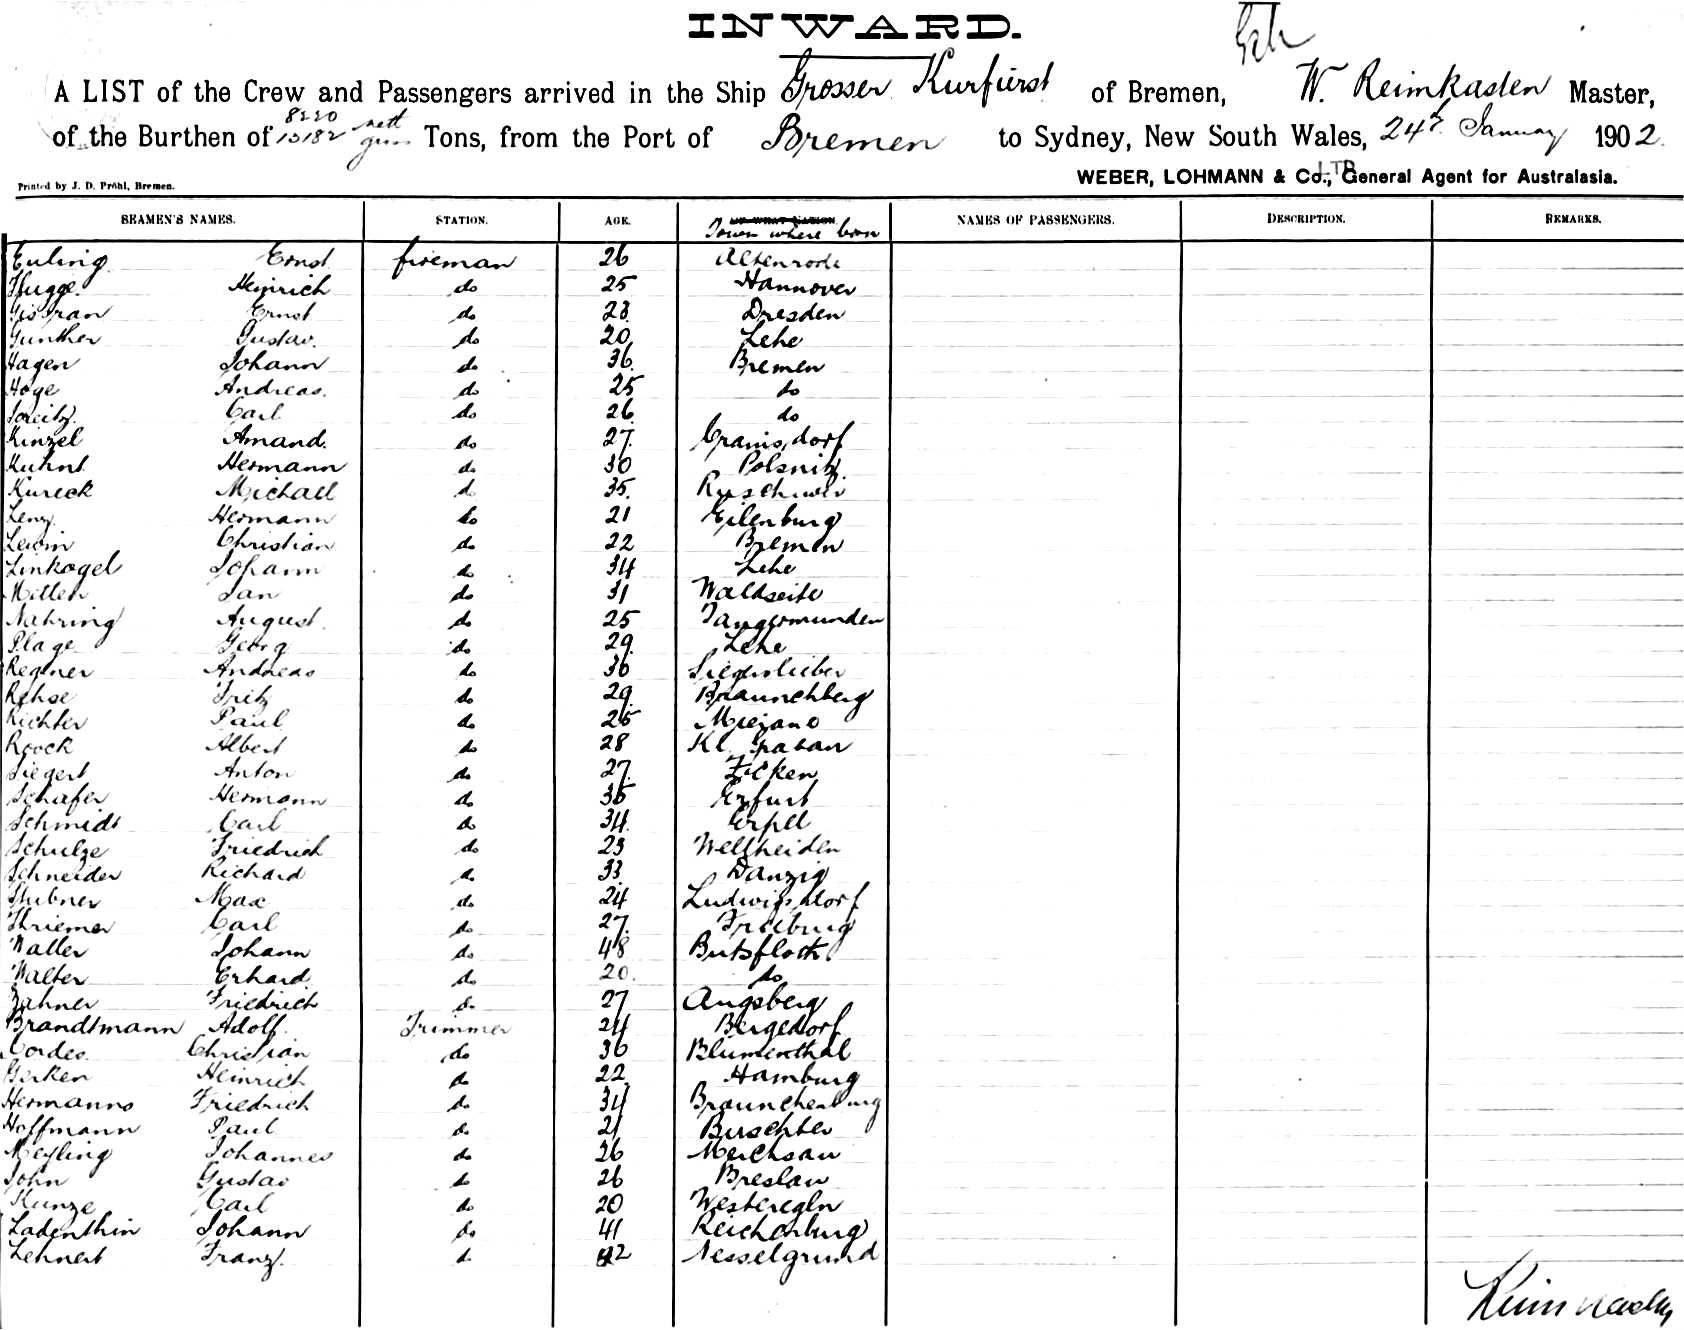 INWARD.
A LIST of the Crew and Passengers arrived in the Ship Grosser Kurfürst of Bremen, W. Reimkasten Master,
of the Burthen of 8220 nett 13182 gross Tons, from the Port of Bremen to Sydney, New South Wales, 24th January 1902.
WEBER, LOHMANN & Co., LTD General Agent for Australasia.
Printed by J. D. Pröhl, Bremen.
SEAMEN'S NAMES. STATION. AGE. OF WHAT NATION. NAMES OF PASSENGERS. DESCRIPTION. REMARKS.
Town where born
Euling Ernst fireman 26 Altenrode
Flugge Heinrich do 25 Hannover
Ernst do 23 Dresden
Gunther Gustav. do 20 Lehe
Hagen Johann do 36 Bremen
Hoge Andreas. do 25 do
Carl do 26 do
Kinzel Amand. do 27 Cranisdorf
Kuhnt Hermann do 30 Polsnitz
Kureck Michael do 35
Lenz Hermann do 21 Eilenburg
Lewin Christian do 22 Bremen
Linkogel Johann do 34 Lehe
Jan do 31 Waldseite
Nahring August do 25 Tangermunden
Plage Georg do 29 Lehe
Regner Andreas do 36
Rehse Fritz do 29 Braunchberg
Richter Paul do 25
Roock Albert do 28 Kl. Graban
Siegert Anton do 27
Schafer Hermann do 35 Erfurt
Schmidt Carl do 34 Erpel
Schulze Friedrich do 23 Wellheiden
Schneider Richard do 33 Danzig
Stubner Max do 24 Ludwigsdorf
Thriemer Carl do 27 Freiburg
Waller Johann do 48 Butsfloth
Walter Erhard do 20 do
Zahner Friedrich do 27 Augsberg
Brandtmann Adolf Trimmer 24 Bergedorf
Cordes Christian do 36 Blumenthal
Gerken Heinrich do 22 Hamburg
Hermanns Friedrich do 34 Braunchenburg
Hoffmann Paul do 21 Buschter
Meyling Johannes do 26 Meichsau
John Gustav do 26 Breslau
Kunze Carl do 20 Westeregln
Ladenthin Johann do 41 Reichenburg
Lehnert Franz. do 22 Nesselgrund